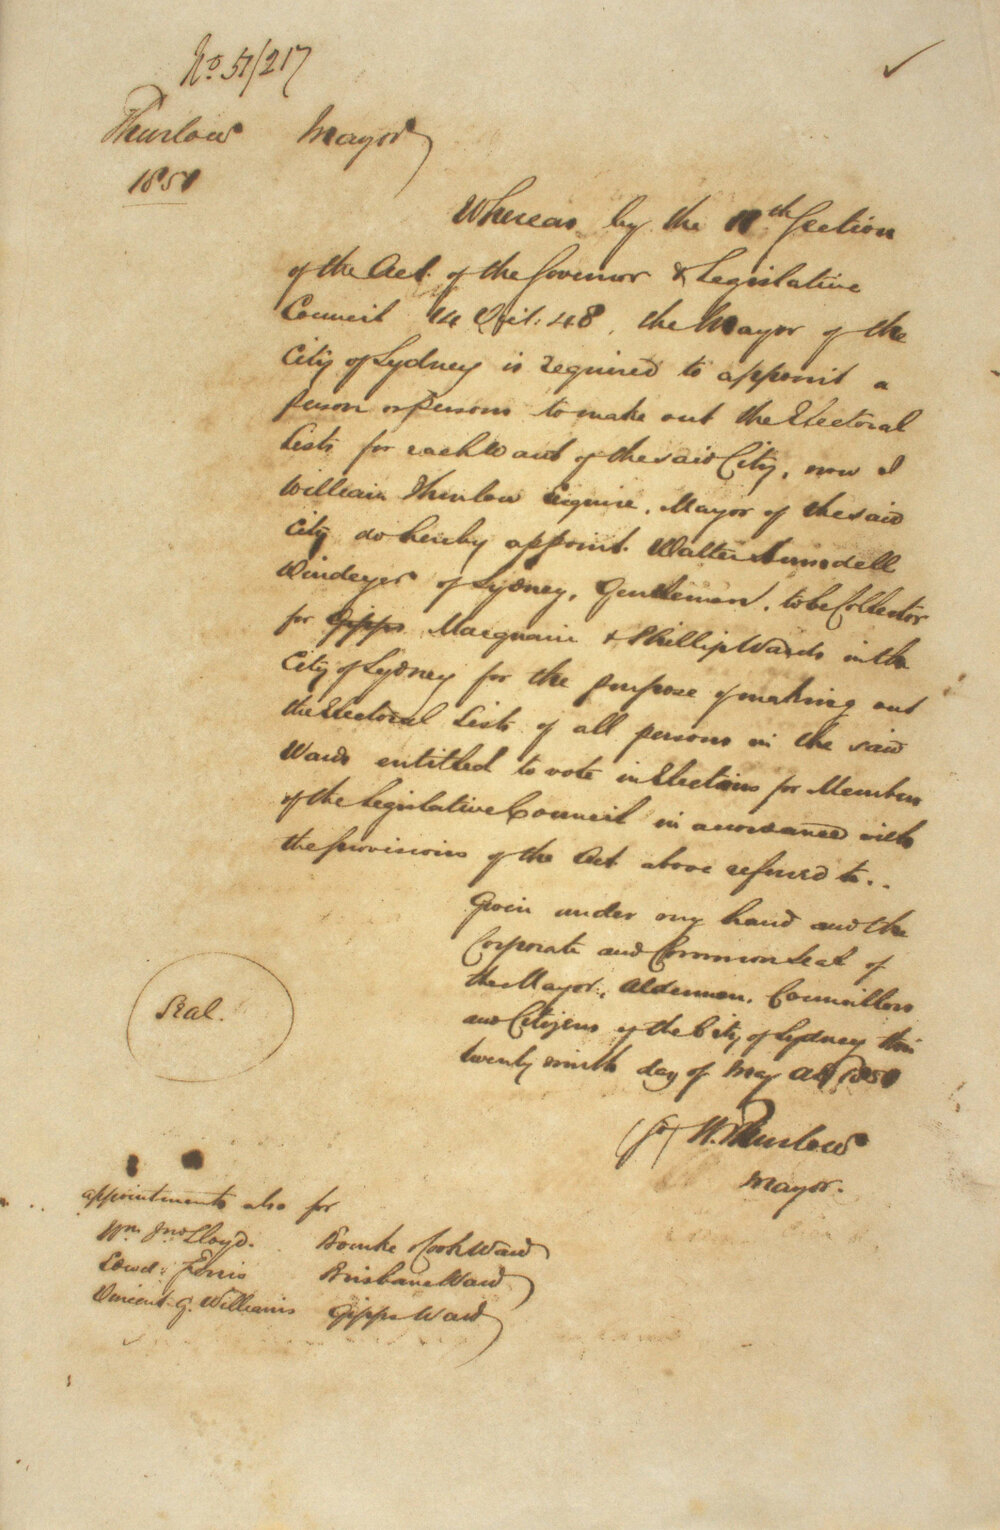 No 51/217
Thurlow Mayor
1851
Whereas by the 11th Section
of the Act of the Governor & Legislative
Council 14 Vict: 48, the Mayor of the
City of Sydney is required to appoint a
person or persons to make out the Electoral
Lists for each Ward of the said City, now I
William Thurlow Esquire, Mayor of the said
City do hereby appoint Walter Lumsdell
Windeyer of Sydney, Gentleman, to be Collector
for Gipps Macquarie & Phillip Wards in the
City of Sydney for the purpose of making out
the Electoral Lists of all persons in the said
Wards entitled to vote in Elections for Members
of the Legislative Council in accordance with
the provisions of the Act above referred to..
Given under my hand and the
Corporate and Common Seal of
the Mayor, Aldermen, Councillors
and Citizens of the City of Sydney this
twenty ninth day of May AD 1851
Seal.
W. Thurlow
Mayor.
appointments also for
Wm Jno Lloyd. Bourke Cook Ward
Edwd: Ferris Brisbane Ward
Vincent G. Williams Gipps Ward